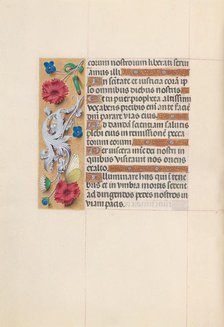 corum nostrorum liberati servi
amus illi
In sanctitate et iusticia coram ip
so omnibus diebus nostris
Et tu puer propheta altissimi
vocaberis preibis enim ante faci
em parare vias eius
Ad dandam scientiam salutis
plebi eius in remissionem pecca
torum eorum
Per viscera dei nostri in
quibus visitavit nos oriens
ex alto
Illuminare his qui i tene
bris et in umbra mortis sedent
ad dirigendos pedes nostros in
viam pacis